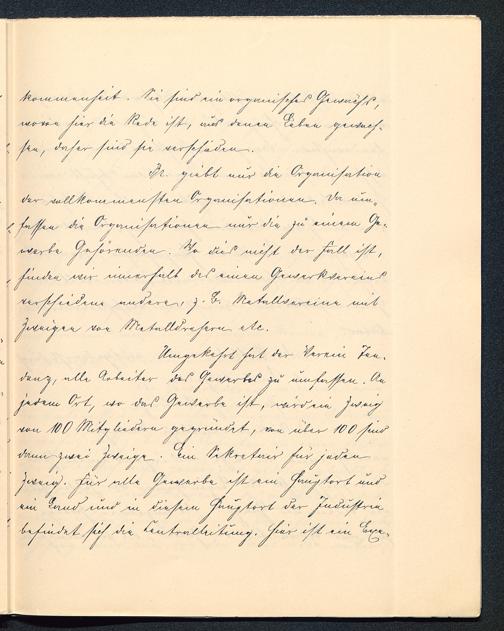 kommenheit. Sie sind ein organisches Gewächs,
wovon hier die Rede ist, aus denen Leben gewach-
sen, daher sind sie verschieden.
Er giebt nur die Organisation
der vollkommensten Organisationen. Da um-
fassen die Organisationen nur die zu einem Ge-
werbe Gehörenden. Wo dies nicht der Fall ist,
finden wir innerhalb des einen Gewerkvereins
verschiedene andere, z. B. Metallvereine mit
Zweigen von Metalldrehern etc.
Umgekehrt hat der Verein Ten-
denz, alle Arbeiter des Gewerbes zu umfassen. An
jedem Ort, wo das Gewerbe ist, wird ein Zweig
von 100 Mitgliedern gegründet, von über 100 sind
dann zwei Zweige. Ein Sekretair für jeden
Zweig. Für alle Gewerbe ist ein Hauptort und
ein Land und in diesem Hauptort der Industrie
befindet sich die Centralleitung. Hier ist ein Exe-